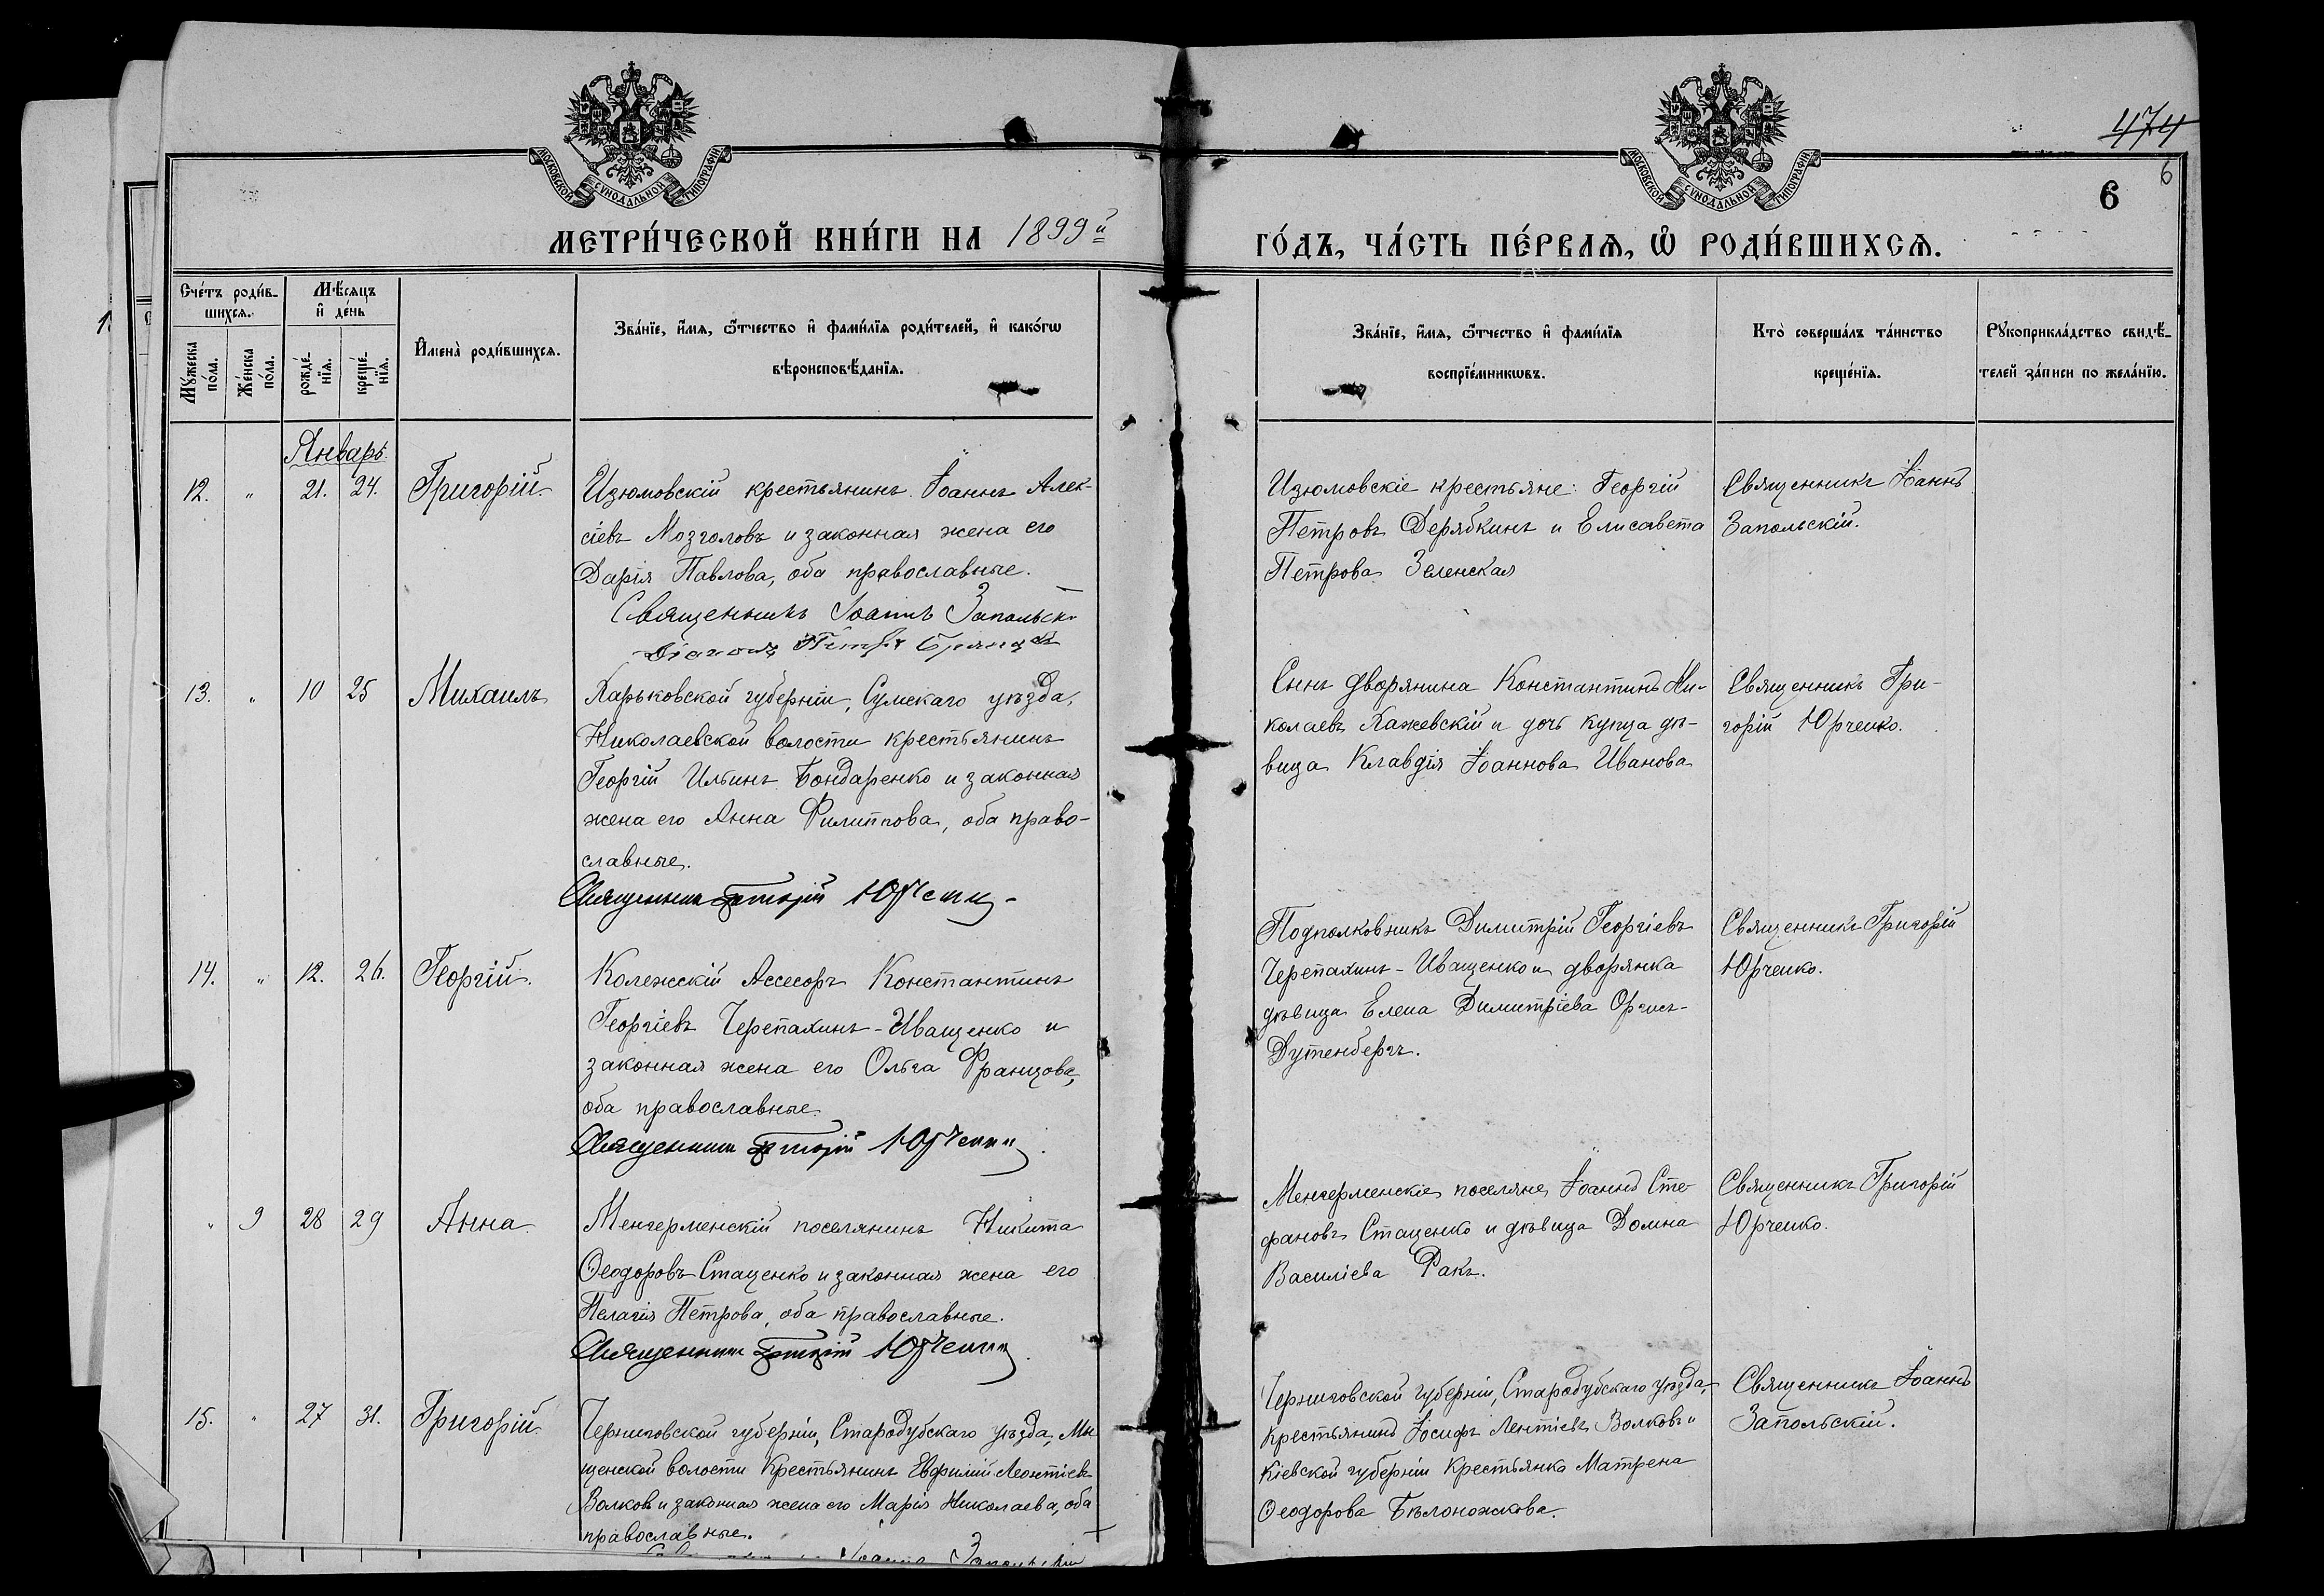 МОСКОВСКОЙ СѴНОДАЛЬНОЙ ТИПОГРАФІИ
МОСКОВСКОЙ СѴНОДАЛЬНОЙ ТИПОГРАФІИ
474
6
6
МЕТРИ́ЧЕСКОЙ КНИ́ГИ НА 1899й
ГО́ДЪ, ЧА́СТЬ ПЕ́РВАѦ, Ѡ҆ РОДИ́ВШИХСѦ.
Сче́тъ роди́в-
шихсѧ.
Мꙋ́жеска
по́ла.
Же́нска
по́ла.
Мѣ́сѧцъ
и҆ де́нь
рожде́-
нїѧ.
креще́-
нїѧ.
И҆мена̀ роди́вшихсѧ.
Зва́нїе, и҆́мѧ, ѻ҆́тчество и҆ фами́лїѧ роди́телей, и҆ како́гѡ
вѣроисповѣ́данїѧ.
Зва́нїе, и҆́мѧ, ѻ҆́тчество и҆ фами́лїѧ
воспрїе́мникѡвъ.
Кто̀ соверша́лъ та́инство
креще́нїѧ.
Рꙋкоприкла́дство свидѣ́-
телей за́писи по жела́нїю.
Январь.
12. " 21. 24. Григорій.
Изюмовскій крестьянинъ Іоаннъ Алек-
сіевъ Мозголовъ и законная жена его
Дарія Павлова, оба православные.
Священникъ Іоаннъ Запольск
Діаконъ Петръ
Изюмовскіе крестьяне: Георгій
Петровъ Дерябкинъ и Елисавета
Петрова Зеленская
Священникъ Іоаннъ
Запольскій.
13. " 10 25 Михаилъ
Харьковской губерніи, Сумскаго уѣзда,
Николаевской волости крестьянинъ
Георгій Ильинъ Бондаренко и законная
жена его Анна Филиппова, оба право-
славные.
Священникъ Григорій Юрченко
Сынъ дворянина Константинъ Ни-
колаевъ Кажевскій и дочь купца дѣ-
вица Клавдія Іоаннова Иванова
Священникъ Гри-
горій Юрченко.
14. " 12. 26. Георгій.
Колежскій Ассесоръ Константинъ
Георгіевъ Черепахинъ-Иващенко и
законная жена его Ольга Францова,
оба православные.
Священникъ Григорій Юрченко
Подполковникъ Димитрій Георгіевъ
Черепахинъ-Иващенко и дворянка
дѣвица Елена Димитріева
Дутенбергъ.
Священникъ Григорій
Юрченко.
" 9 28 29 Анна
Менгерменскій поселянинъ Никита
Ѳеодоровъ Стаценко и законная жена его
Пелагія Петрова, оба православные.
Священникъ Григорій Юрченко
Менгерменскіе поселяне, Іоаннъ Сте-
фановъ Стаценко и дѣвица Домна
Василіева Ракъ.
Священникъ Григорій
Юрченко.
15. " 27 31. Григорій
Черниговской губерніи, Стародубскаго уѣзда, Мы
щенской волости Крестьянинъ Евфимій Леонтіевъ
Волковъ и законная жена его Марія Николаева, оба
православные.
Іоаннъ Запольскій
Черниговской губерніи, Стародубскаго уѣзда,
крестьянинъ Іосифъ Леонтіевъ Волковъ и
Кіевской губерніи Крестьянка Матрена
Ѳеодорова Бѣлоножкова.
Священникъ Іоаннъ
Запольскій.